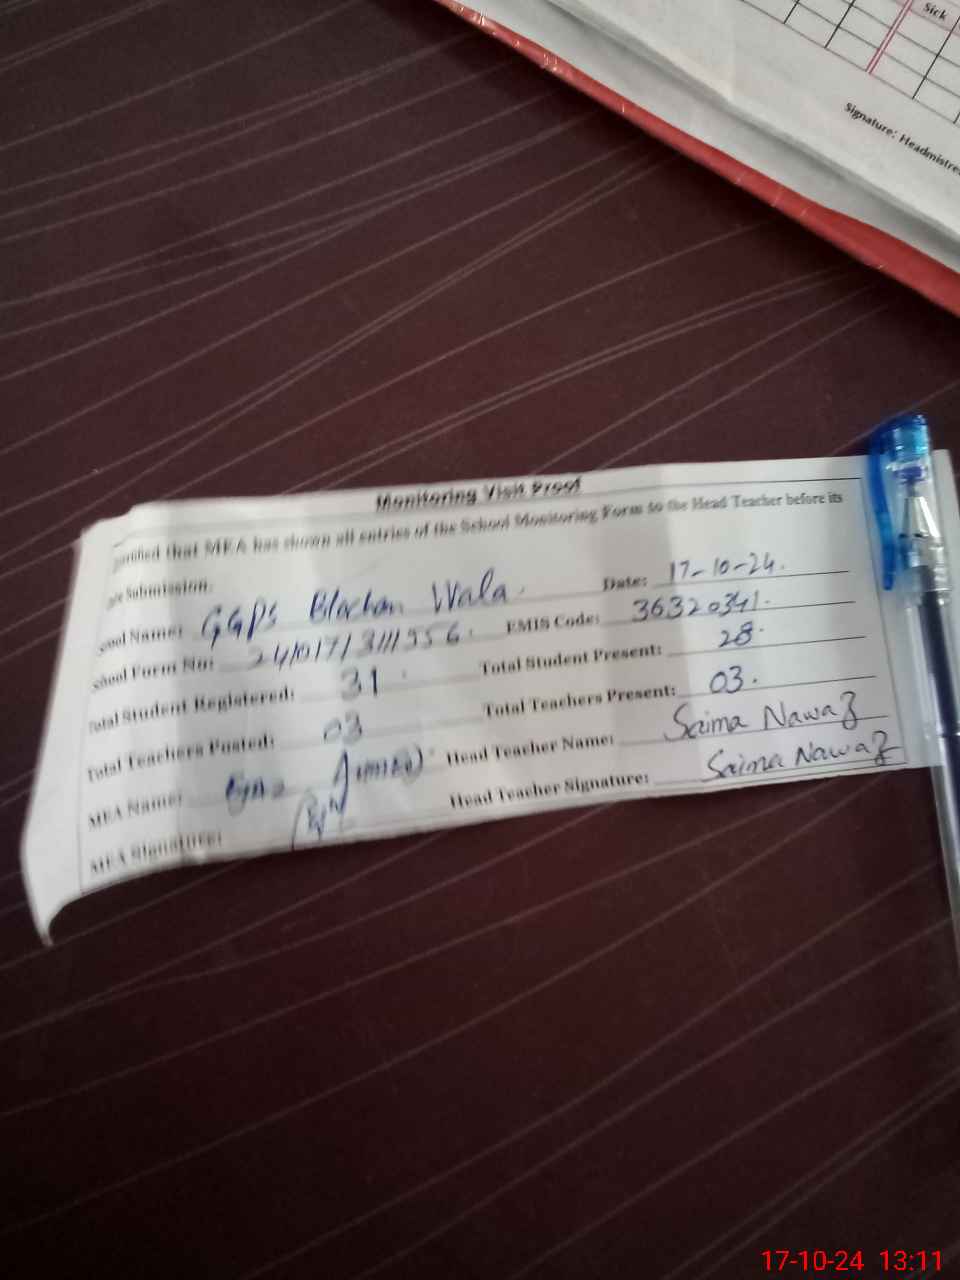 Sick
Signature: Headmistre
Monitoring Visit Proof
that MEA has shown all entries of the School Monitoring Form to the Head Teacher before its
Submission.
ool Name: GGPS Blochan Wala. Date: 17-10-24.
chool Form No: EMIS Code: 36320341.
otal Student Registered: 31 Total Student Present: 28.
Total Teachers Posted: 03 Total Teachers Present: 03.
MEA Name: Head Teacher Name: Saima Nawaz
MEA Signature: Head Teacher Signature: Saima Nawaz
17-10-24 13:11